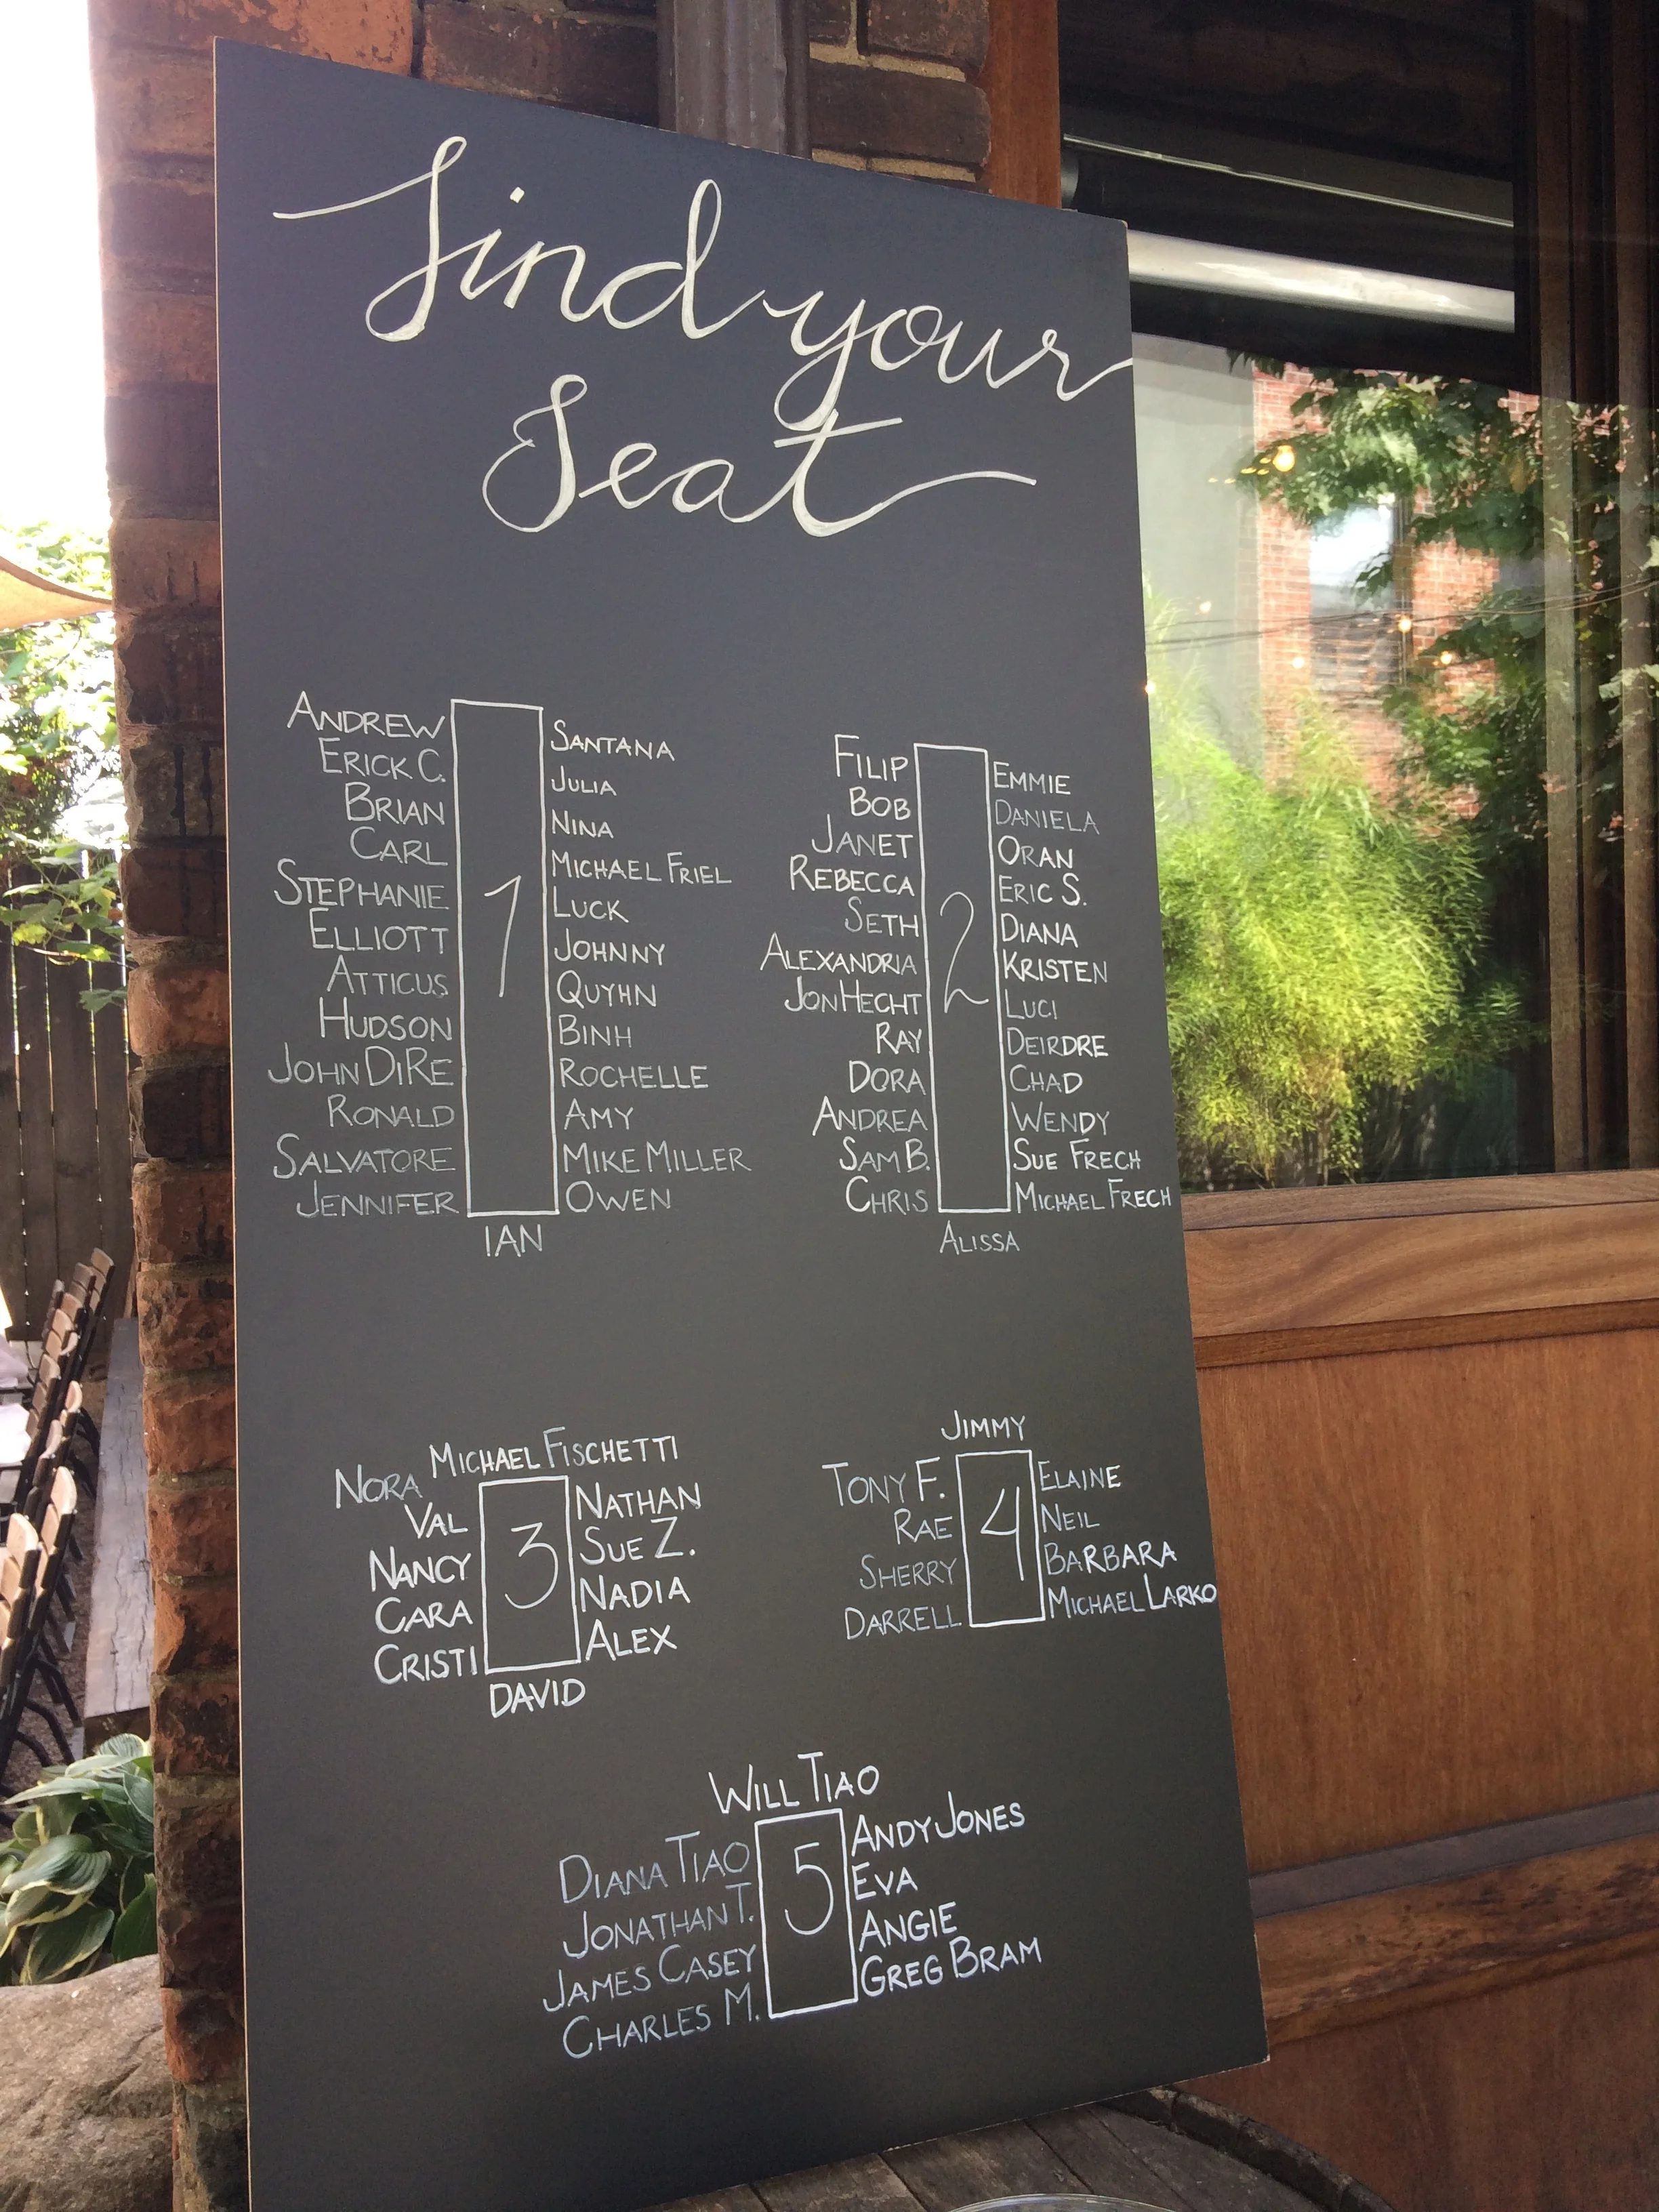 Find your
Seat
ANDREW
ERICK C.
BRIAN
CARL
STEPHANIE
ELLIOTT
ATTICUS
HUDSON
JOHN DIRE
RONALD
SALVATORE
JENNIFER
1
SANTANA
JULIA
NINA
MICHAEL FRIEL
LUCK
JOHNNY
QUYHN
BINH
ROCHELLE
AMY
MIKE MILLER
OWEN
IAN
FILIP
BOB
JANET
REBECCA
SETH
ALEXANDRIA
JON HECHT
RAY
DORA
ANDREA
SAM B.
CHRIS
2
EMMIE
DANIELA
ORAN
ERIC S.
DIANA
KRISTEN
LUCI
DEIRDRE
CHAD
WENDY
SUE FRECH
MICHAEL FRECH
ALISSA
MICHAEL FISCHETTI
NORA
VAL
NANCY
CARA
CRISTI
3
NATHAN
SUE Z.
NADIA
ALEX
DAVID
JIMMY
TONY F.
RAE
SHERRY
DARRELL
4
ELAINE
NEIL
BARBARA
MICHAEL LARKO
WILL TIAO
DIANA TIAO
JONATHAN T.
JAMES CASEY
CHARLES M.
5
ANDY JONES
EVA
ANGIE
GREG BRAM